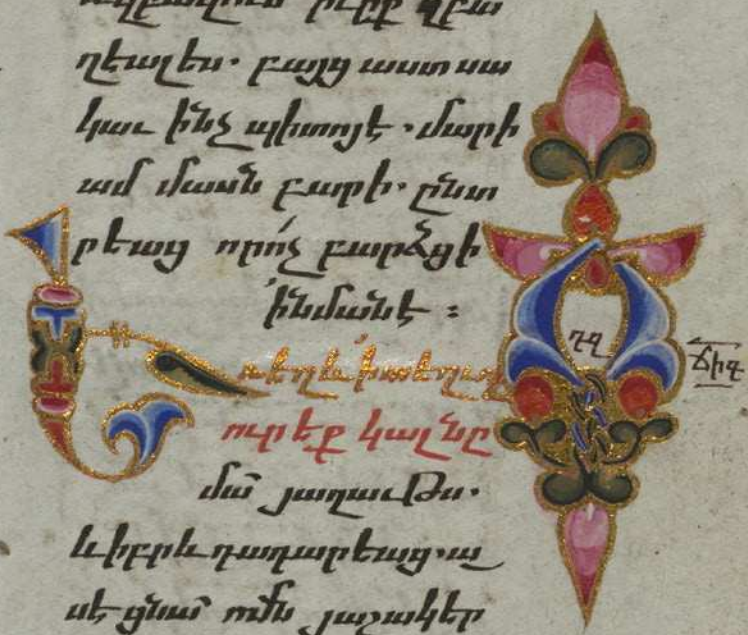 զբա
ղեալ ես. բայց աստ սա
կաւ ինչ պիտոյ է. մարի
ամ մասն բարի. ընտ
րեաց որ ոչ բարձցի
ինմանէ :
Եւ եղև ի տեղւոջ
ճիգ
ուրեք կալ նը
մա յաղաւթս.
և իբրև դադարեաց. ա
սէ ցնա ոմն յաշակեր